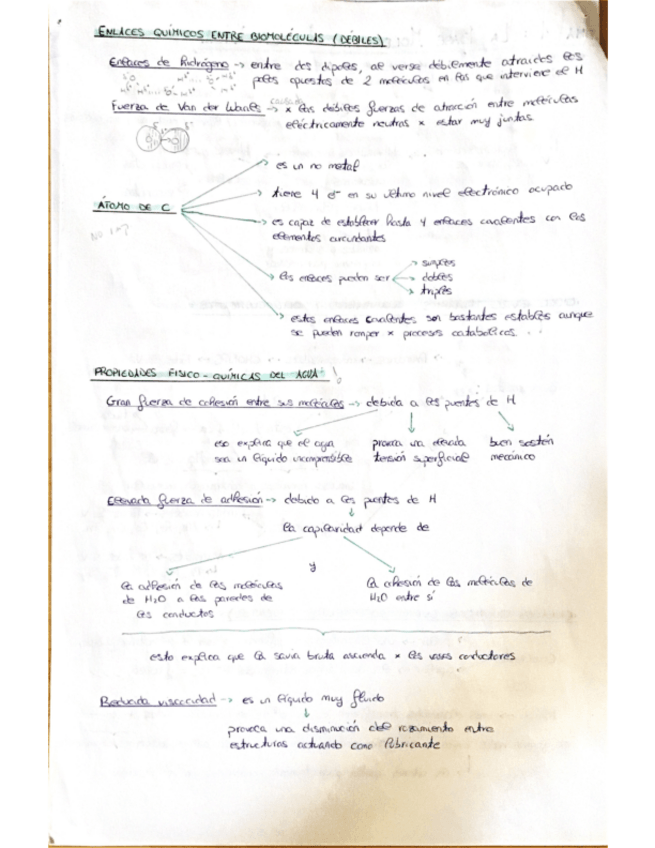 ENLACES QUÍMICOS ENTRE BIOMOLÉCULAS (DÉBILES)
Enlaces de Hidrógeno → entre dos dipolos, al verse débilmente atraídos los
polos opuestos de 2 moléculas en las que interviene el H
Fuerza de Van der Waals → x las débiles fuerzas de atracción entre moléculas
eléctricamente neutras x estar muy juntas
es un no metal
tiene 4 e⁻ en su último nivel electrónico ocupado
ÁTOMO DE C
es capaz de establecer hasta 4 enlaces covalentes con los
elementos circundantes
los enlaces pueden ser
simples
dobles
triples
estos enlaces covalentes son bastantes estables aunque
se pueden romper x procesos catabólicos
PROPIEDADES FISICO-QUÍMICAS DEL AGUA
Gran fuerza de cohesión entre sus moléculas → debida a los puentes de H
eso explica que el agua provoca una elevada buen sostén
sea un líquido incompresible tensión superficial mecánico
Elevada fuerza de adhesión → debido a los puentes de H
la capilaridad depende de
y
la adhesión de las moléculas la cohesión de las moléculas de
de H₂O a las paredes de H₂O entre sí
los conductos
esto explica que la savia bruta ascienda x los vasos conductores
Reducida viscosidad → es un líquido muy fluido
provoca una disminución del rozamiento entre
estructuras actuando como lubricante